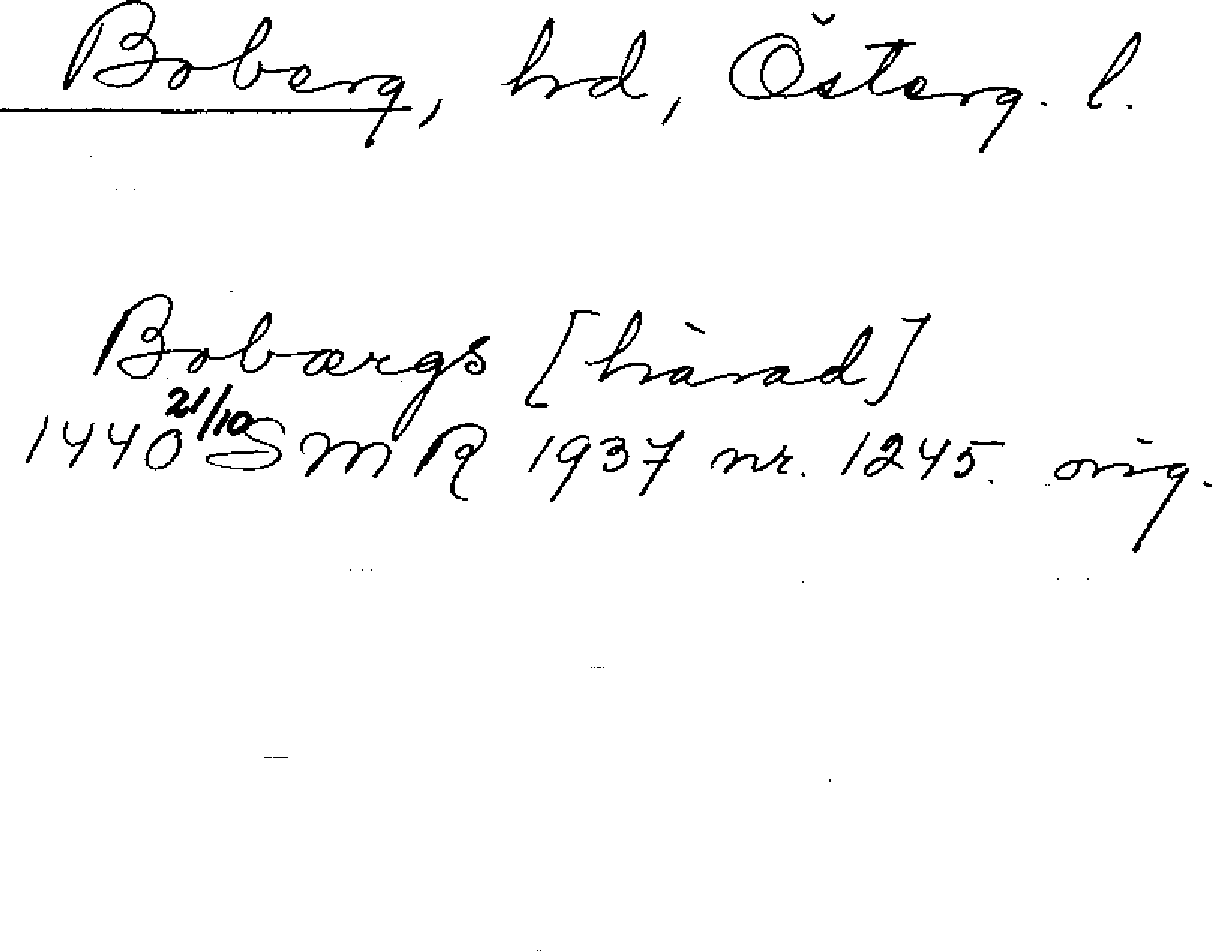 Boberg, hd, Österg. l.
Bobærgs [härad]
1440 21/10 SMR 1937 nr. 1245. orig.